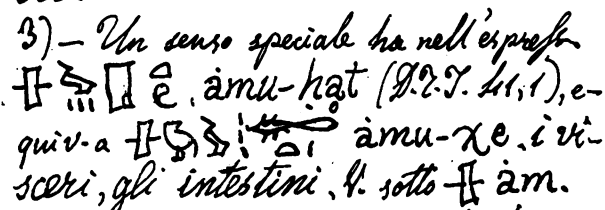 3) — Un senso speciale ha nell'espress.
ȧmu-hȧt (D.T.I. 41, 1), e-
quiv. a ȧmu-χe. i vi-
sceri, gli intestini. V. sotto ȧm.